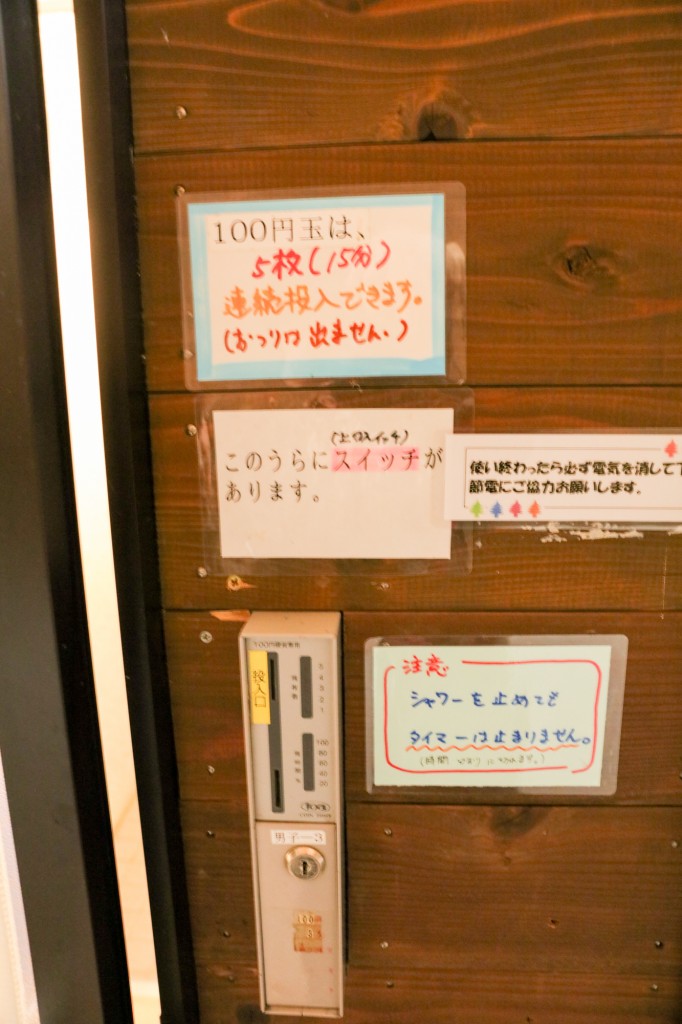 100円玉は、
5枚(15分)
連続投入できます。
(おつりは出ません。)
このうらにスイッチが
あります。
使い終わったら必ず電気を消して下
節電にご協力お願いします。
投入口
5
4
3
2
1
100
80
60
40
20
男子ー3
注意
シャワーを止めても
タイマーは止まりません。